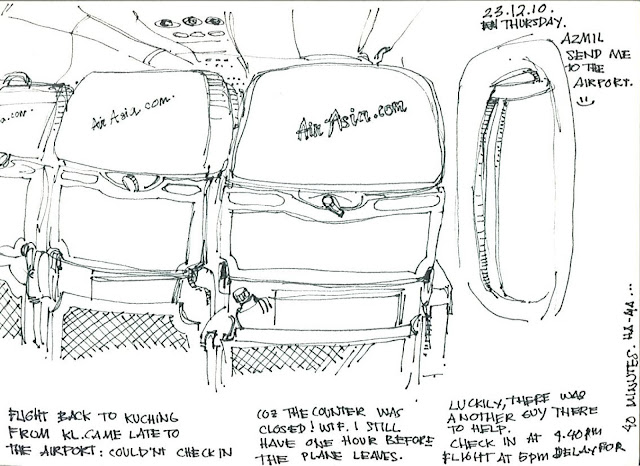 23.12.10.
THURSDAY.
AZMIL
SEND ME
TO THE
AIRPORT.
AirAsia.com
AirAsia.com
FLIGHT BACK TO KUCHING
FROM KL. CAME LATE TO
THE AIRPORT: COULD'NT CHECK IN
COZ THE COUNTER WAS
CLOSED! WTF. I STILL
HAVE ONE HOUR BEFORE
THE PLANE LEAVES.
LUCKILY, THERE WAS
ANOTHER GUY THERE
TO HELP.
CHECK IN AT 4.40PM
FLIGHT AT 5PM DELAY FOR
40 MINUTES. HA-HA...